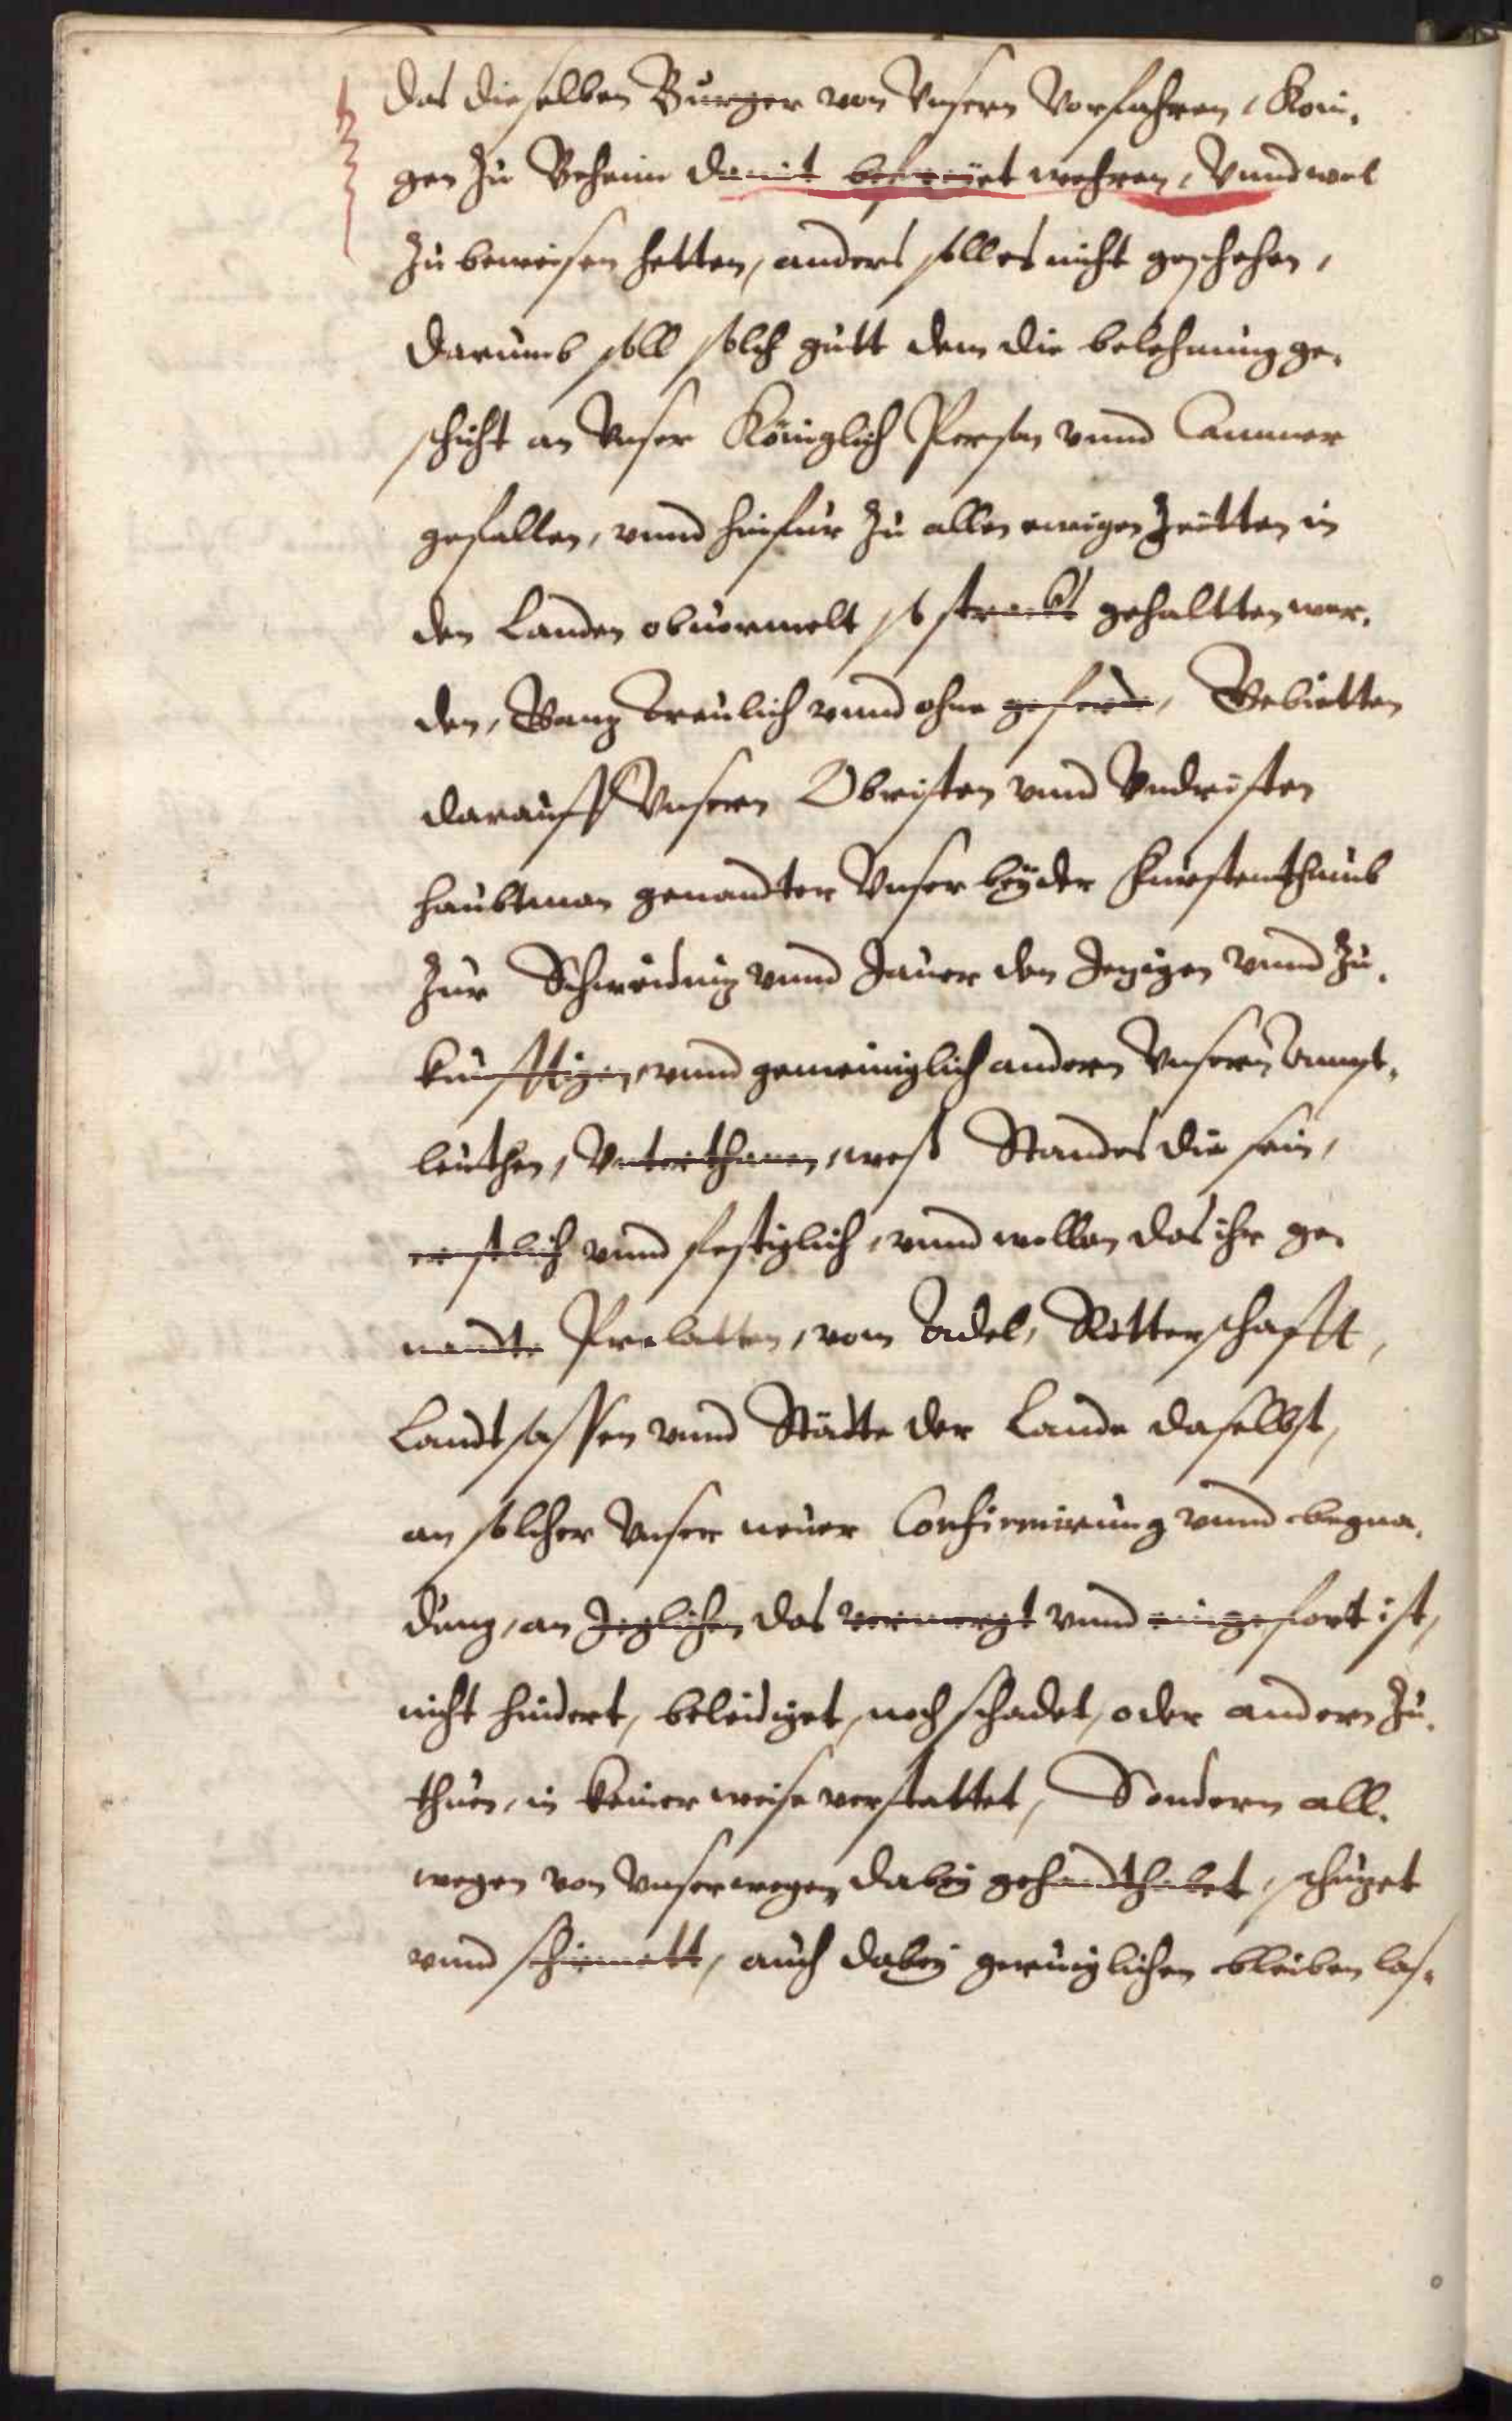 das dieselben Burger von Vnsern Vorfahren, Koni,
gen zu Beheim damit befreiet wehren, Vnnd wol
zu beweisen hetten, anders soll es nicht geschehen,
darumb soll solch gutt dem die belehnung ge,
schicht an Vnser Königlich Person vnnd Cammer
gefallen, vnnd hinfur zu allen ewigen Zeitten in
den Landen obuermelt so strackt gehaltten wer,
den, Gantz treulich vnnd ohne geferde, Gebietten
darauff Vnsern Obristen vnnd Vndristen
haubtman genandter Vnser beyder Furstenthumb
zur Schweidnitz vnnd Jauer den Jetzigen vnnd Zu,
kunfftigen, vnnd gemeiniglich andern Vnsern Ampt,
leuthen, Vnterthanen, weß Standes die sein,
ernstlich vnnd festiglich, vnnd wollen das ihr ge,
nandte Prelatten, vom Adel, Ritterschafft,
Landtsassen vnnd Städte der Lande daselbst,
an solcher Vnser neuer Confirmirung vnnd begna,
dung, an Jeglichen das vermergt vnnd eingefort ist,
nicht hindert, beleidiget, noch schadet, oder andern zu,
thuen, in keiner weise verstattet, Sondern all,
wegen von Vnser wegen dabey gehandthabet, schutzet
vnnd schirmett, auch dabey geruiglichen bleiben las,